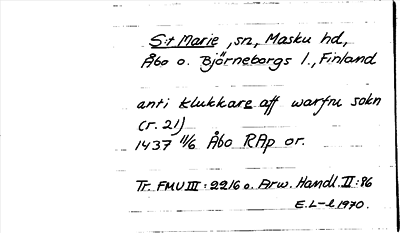 S:t Marie, sn, Masku hd,
Åbo o. Björneborgs l., Finland
anti klukkare aff warfru sokn
(r. 21)
1437 11/6 Åbo RAp or.
Tr. FMU III: 2216 o. Arw. Handl. II: 86
E.L-l 1970.